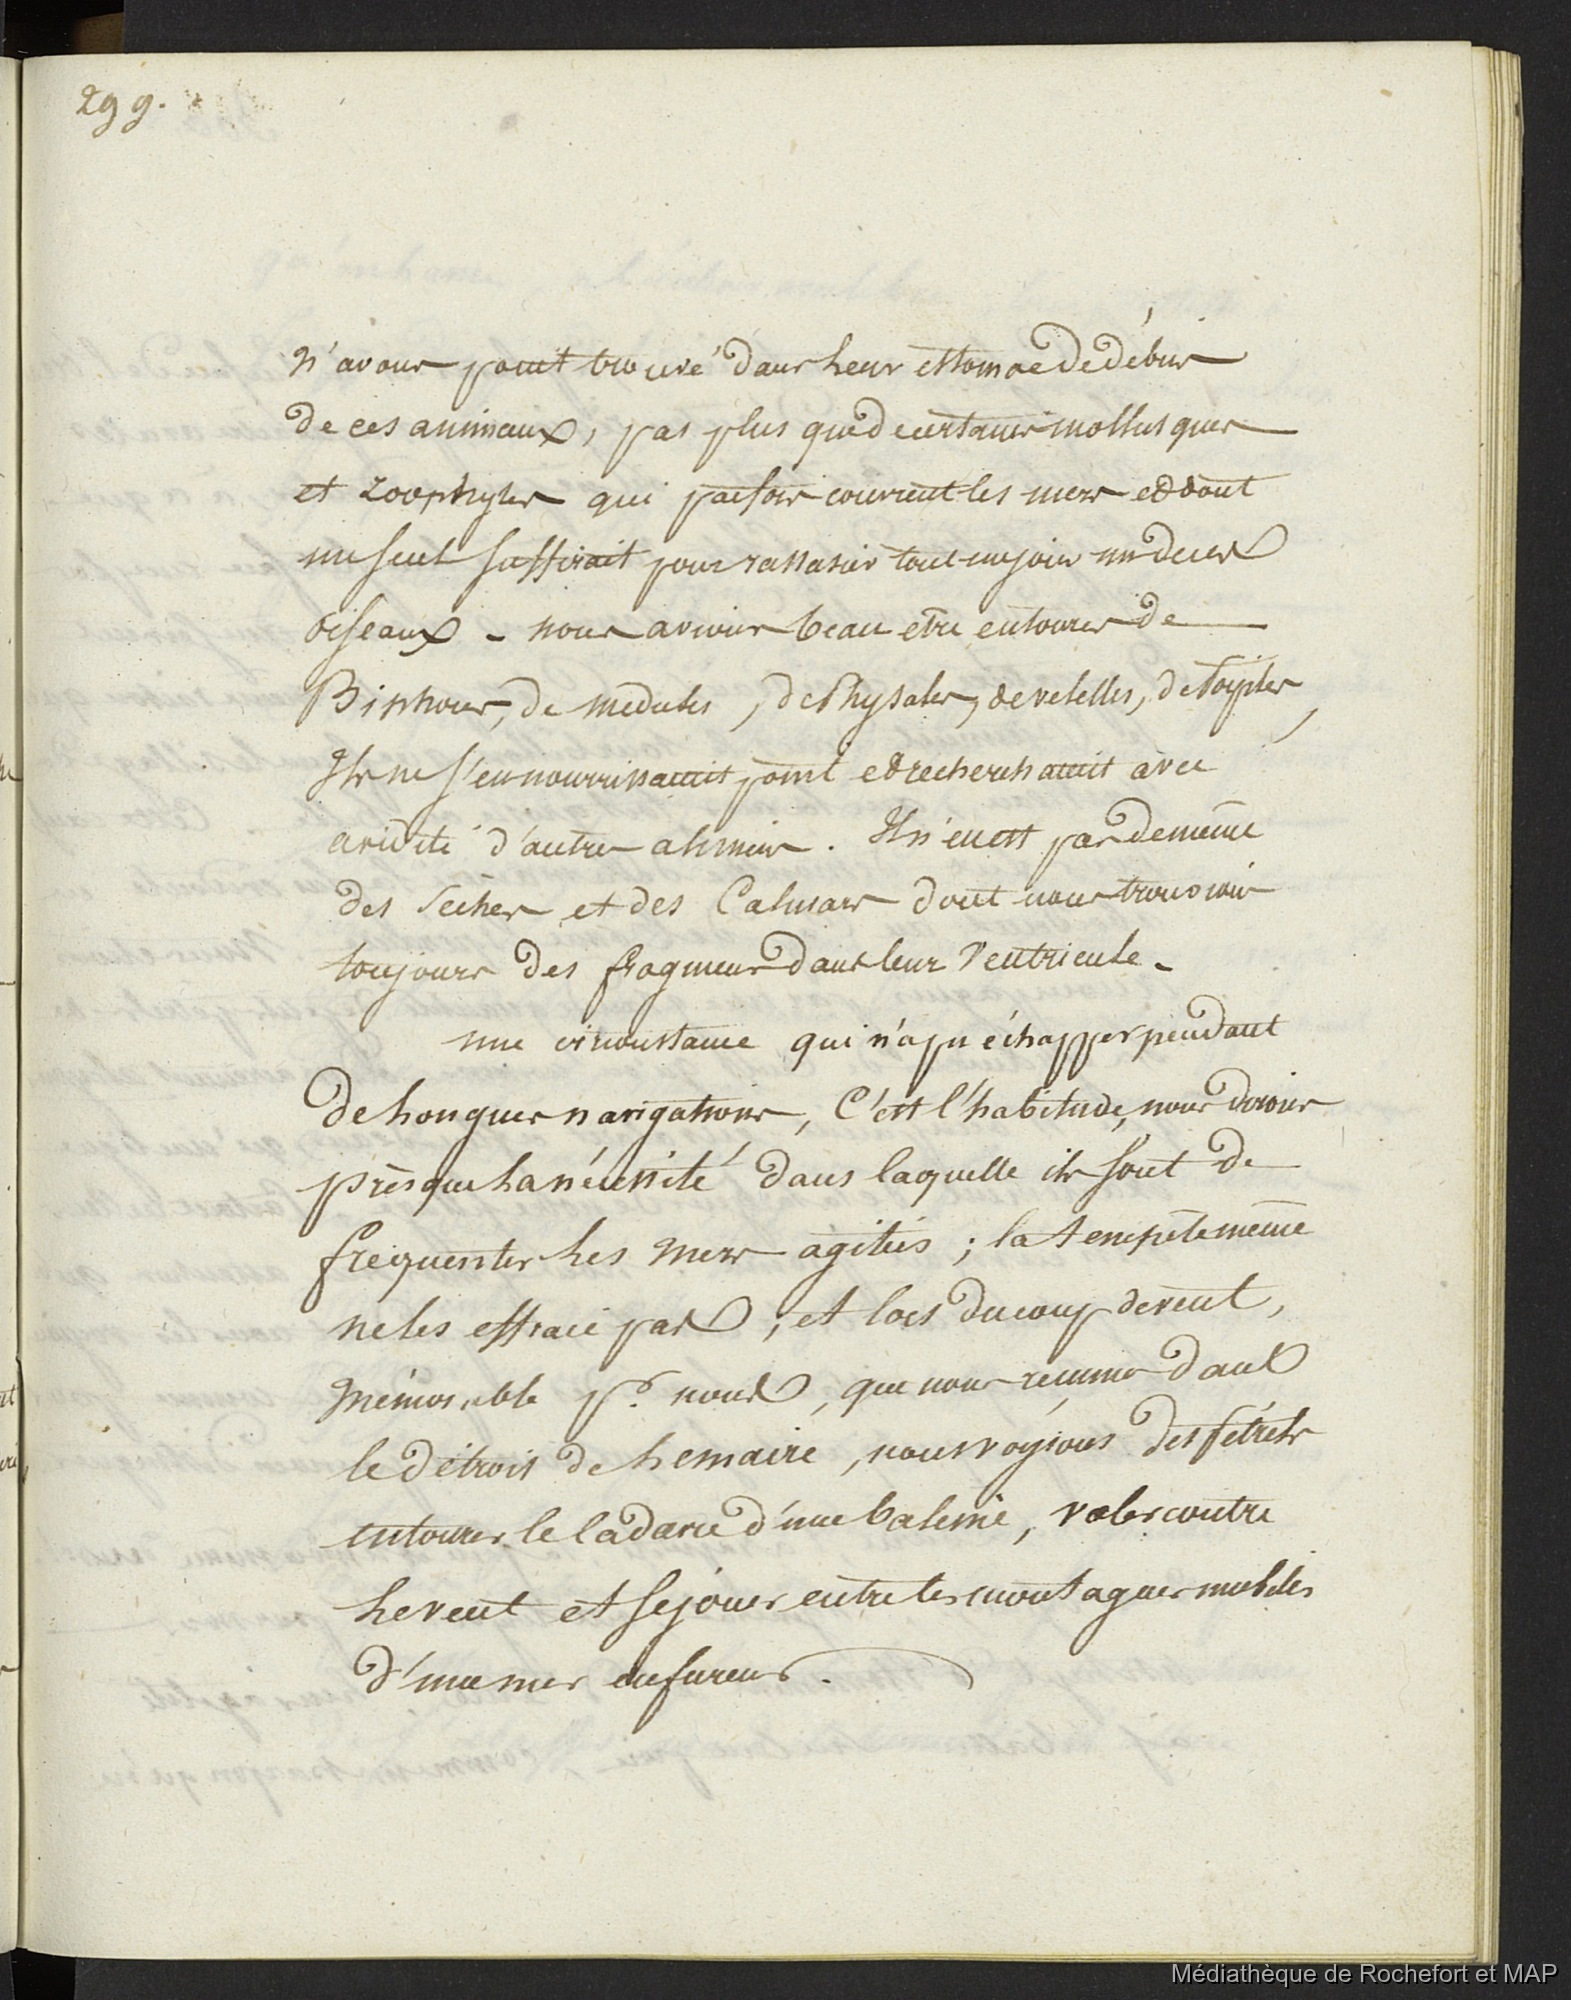 299.
n'avons point trouvé dans leur estomac de débris
de ces animaux, pas plus que de certains mollusques
et zoophytes qui parfois couvrent les mers et dont
un seul suffirait pour rassasier tout un jour un de ces
oiseaux - nous avions beau etre entourés de
Biphores, de meduses, de Physales, de velelles,
Ils ne s'en nourrissaient point et recherchaient avec
avidité d'autres alimens. Il n'en est pas de même
des Séches et des Calmars dont nous trouvions
toujours des fragmens dans leur Ventricule -
une circonstance qui n'a pu échapper pendant
de longues navigations, C'est l'habitude, nous dirions
presque la nécessité dans laquelle ils sont de
fréquenter les mers agitées ; la tempête même
ne les effraie pas ; et lors du coup de vent,
mémorable pr. nous, que nous reçumes dans
le détroit de Lemaire, nous voyions des Pétrels
entourer le cadavre d'une baleine, voler contre
le vent et se jouer entre les montagnes mobiles
d'une mer en fureur.
Médiathèque de Rochefort et MAP